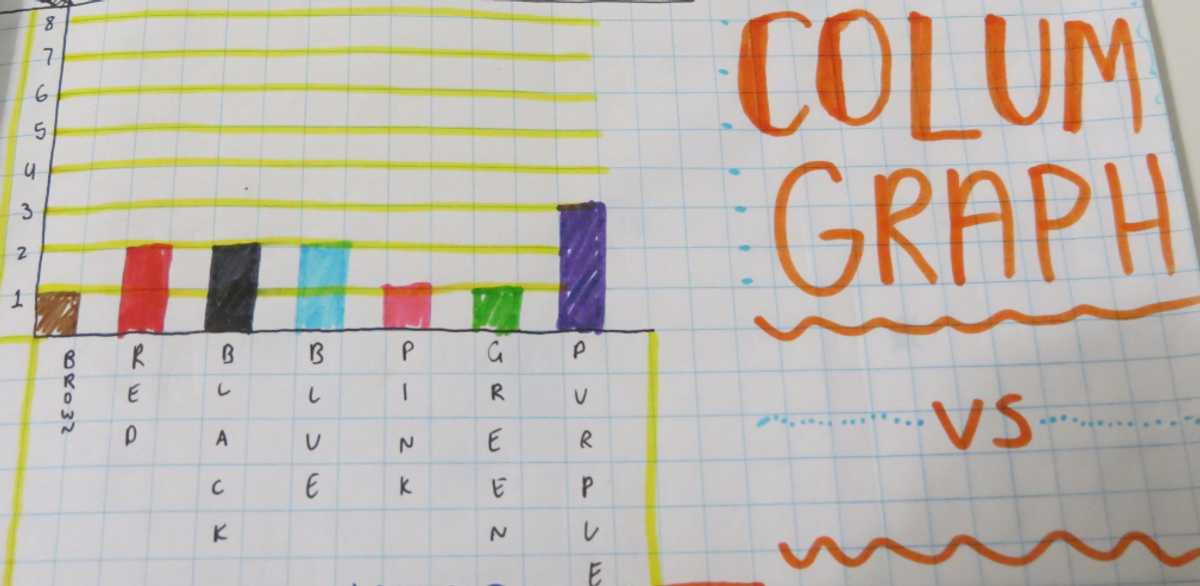 8
7
6
5
4
3
2
1
BROWN
RED
BLACK
BLUE
PINK
GREEN
PURPLE
COLUM
GRAPH
VS